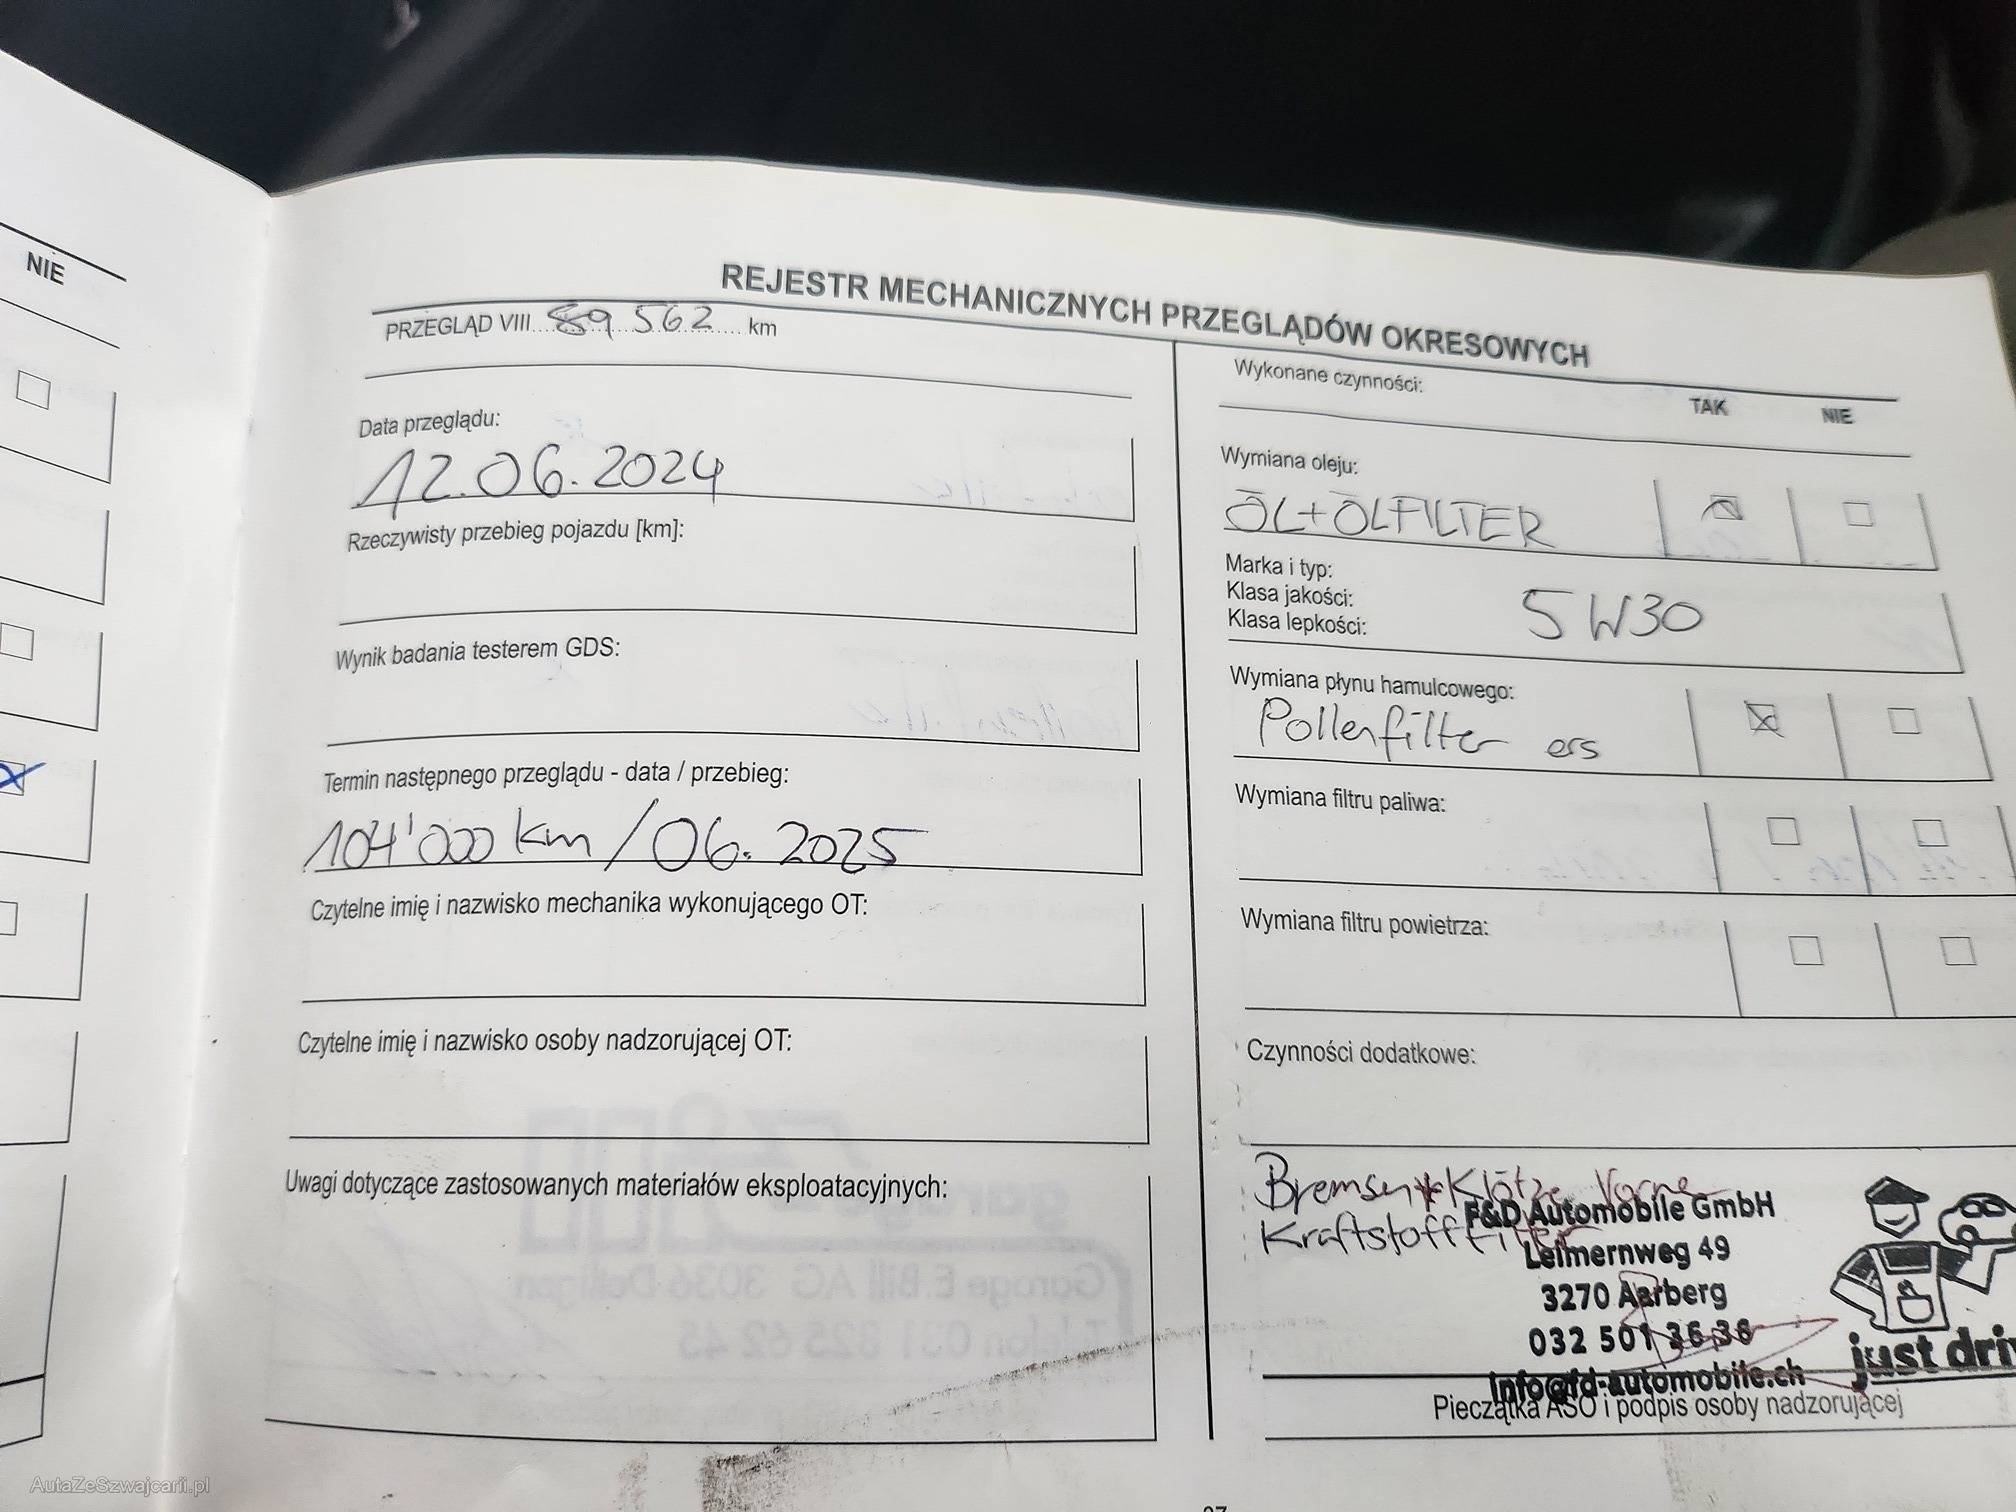 NIE
REJESTR MECHANICZNYCH PRZEGLĄDÓW OKRESOWYCH
PRZEGLĄD VIII 89 562 km
Data przeglądu:
12.06.2024
Rzeczywisty przebieg pojazdu [km]:
Wynik badania testerem GDS:
Termin następnego przeglądu - data / przebieg:
104'000 km / 06. 2025
Czytelne imię i nazwisko mechanika wykonującego OT:
Czytelne imię i nazwisko osoby nadzorującej OT:
Uwagi dotyczące zastosowanych materiałów eksploatacyjnych:
Wykonane czynności:
TAK NIE
Wymiana oleju:
ÖL+ÖLFILTER
Marka i typ:
Klasa jakości:
Klasa lepkości:
5W30
Wymiana płynu hamulcowego:
Pollenfilter ers
Wymiana filtru paliwa:
Wymiana filtru powietrza:
Czynności dodatkowe:
Bremsen Klötze Vorne
Kraftstofffilter
F&D Automobile GmbH
Leimernweg 49
3270 Aarberg
032 501 36 36
info@fd-automobile.ch
just driv
Pieczątka ASO i podpis osoby nadzorującej
AutaZeSzwajcarii.pl